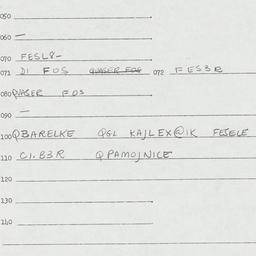 050
060 –
070 FESL8-
071 DI FOS QUASER FOS 072 FES3R
080 QUASER FOS
090 –
100 QBARELKE QGL KAJLEX@IK FESELE
110 CI.B3R QPAMOJNICE
120
130
140